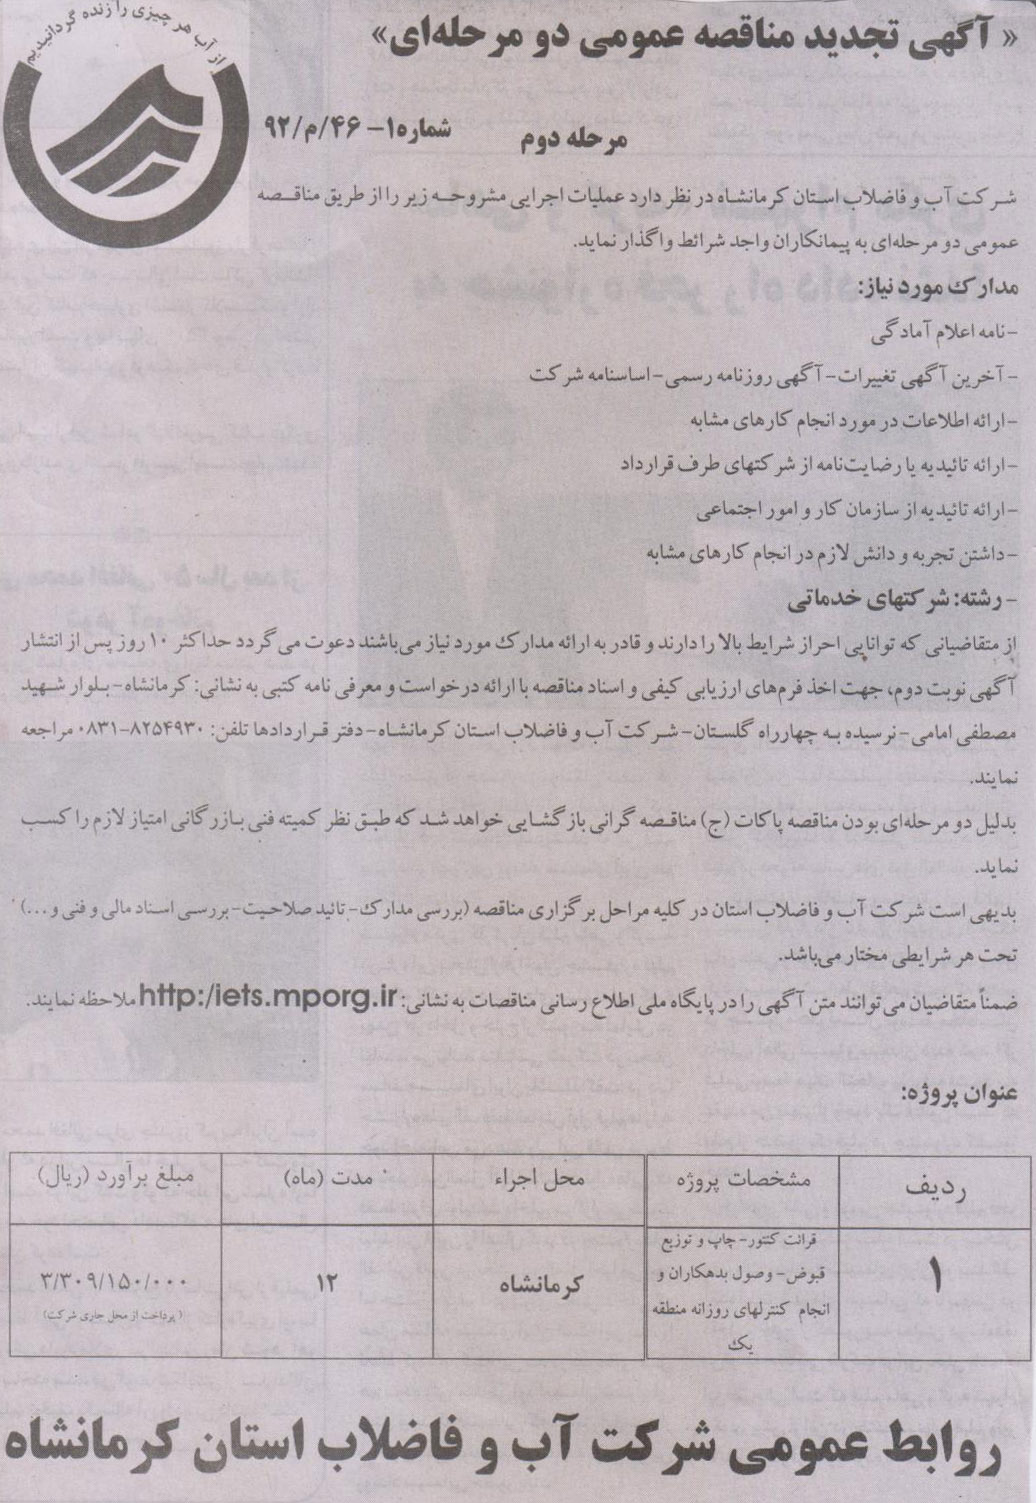 از آب هر چیزی را زنده گردانیدیم
« آگهی تجدید مناقصه عمومی دو مرحله‌ای»
مرحله دوم
شماره ۱- ۴۶/م/۹۲
شرکت آب و فاضلاب استان کرمانشاه در نظر دارد عملیات اجرایی مشروحه زیر را از طریق مناقصه
عمومی دو مرحله‌ای به پیمانکاران واجد شرائط واگذار نماید.
مدارک مورد نیاز:
-نامه اعلام آمادگی
- آخرین آگهی تغییرات-آگهی روزنامه رسمی-اساسنامه شرکت
-ارائه اطلاعات در مورد انجام کارهای مشابه
-ارائه تائیدیه یا رضایت‌نامه از شرکتهای طرف قرارداد
-ارائه تائیدیه از سازمان کار و امور اجتماعی
-داشتن تجربه و دانش لازم در انجام کارهای مشابه
- رشته: شرکتهای خدماتی
از متقاضیانی که توانایی احراز شرایط بالا را دارند و قادر به ارائه مدارک مورد نیاز می‌باشند دعوت می گردد حداکثر ۱۰ روز پس از انتشار
آگهی نوبت دوم، جهت اخذ فرم‌های ارزیابی کیفی و اسناد مناقصه با ارائه درخواست و معرفی نامه کتبی به نشانی: کرمانشاه-بلوار شهید
مصطفی امامی-نرسیده به چهارراه گلستان-شرکت آب و فاضلاب استان کرمانشاه-دفتر قراردادها تلفن: ۸۲۵۴۹۳۰-۰۸۳۱ مراجعه
نمایند.
بدلیل دو مرحله‌ای بودن مناقصه پاکات (ج) مناقصه گرانی بازگشایی خواهد شد که طبق نظر کمیته فنی بازرگانی امتیاز لازم را کسب
نماید.
بدیهی است شرکت آب و فاضلاب استان در کلیه مراحل برگزاری مناقصه (بررسی مدارک-تائید صلاحیت-بررسی اسناد مالی و فنی و...)
تحت هر شرایطی مختار می‌باشد.
ضمناً متقاضیان می توانند متن آگهی را در پایگاه ملی اطلاع رسانی مناقصات به نشانی: http:/iets.mporg.ir ملاحظه نمایند.
عنوان پروژه:
ردیف
مشخصات پروژه
محل اجراء
مدت (ماه)
مبلغ برآورد (ریال)
۱
قرائت کنتور-چاپ و توزیع
قبوض-وصول بدهکاران و
انجام کنترلهای روزانه منطقه
یک
کرمانشاه
۱۲
۳/۳۰۹/۱۵۰/۰۰۰
(پرداخت از محل جاری شرکت)
روابط عمومی شرکت آب و فاضلاب استان کرمانشاه